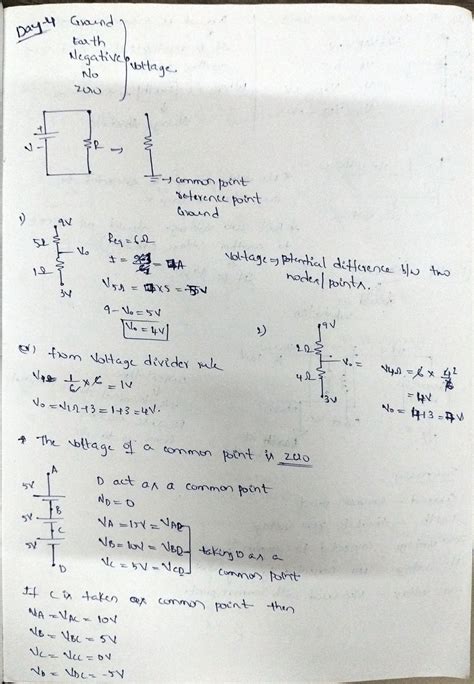 Day-4
Ground
Earth
Negative
No
zero
Voltage
+
V -
R
→
→ common point
reference point
Ground
1)
9V
5Ω
V₀
1Ω
3V
Req = 6Ω
= 1A
V5Ω = 1×5 = 5V
9-V₀ = 5V
V₀ = 4V
Voltage ⇒ potential difference b/w two
nodes/points.
2)
9V
2Ω
V₀ =
4Ω
3V
V4Ω = 6 × 4/6
= 4V
V₀ = 4+3 = 7V
(or) from voltage divider rule
V1Ω = 1/6 × 6 = 1V
V₀ = V1Ω+3 = 1+3 = 4V.
* The voltage of a common point is zero
A
5V
B
5V
C
5V
D
D act as a common point
ND = 0
VA = 15V = VAD
VB = 10V = VBD
VC = 5V = VCD
taking D as a
common point
If C is taken as common point then
VA = VAC = 10V
VB = VBC = 5V
VC = VCC = 0V
VD = VDC = -5V